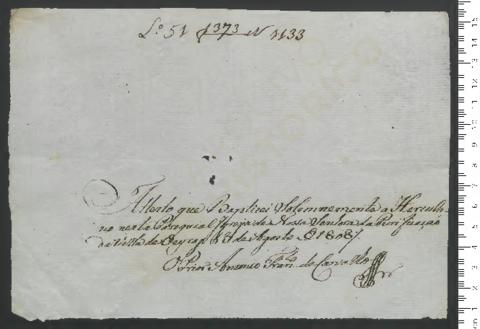 L.o 51 1373 N 1133
Attesto que Baptizei Solemnemente a Herculi-
no nesta Paroquial Igreja de Nossa Senhora da Purificação
da Villa de Oeyras 8 de Agosto de 1808
O Prior Antonio Fran.co de Carvalho